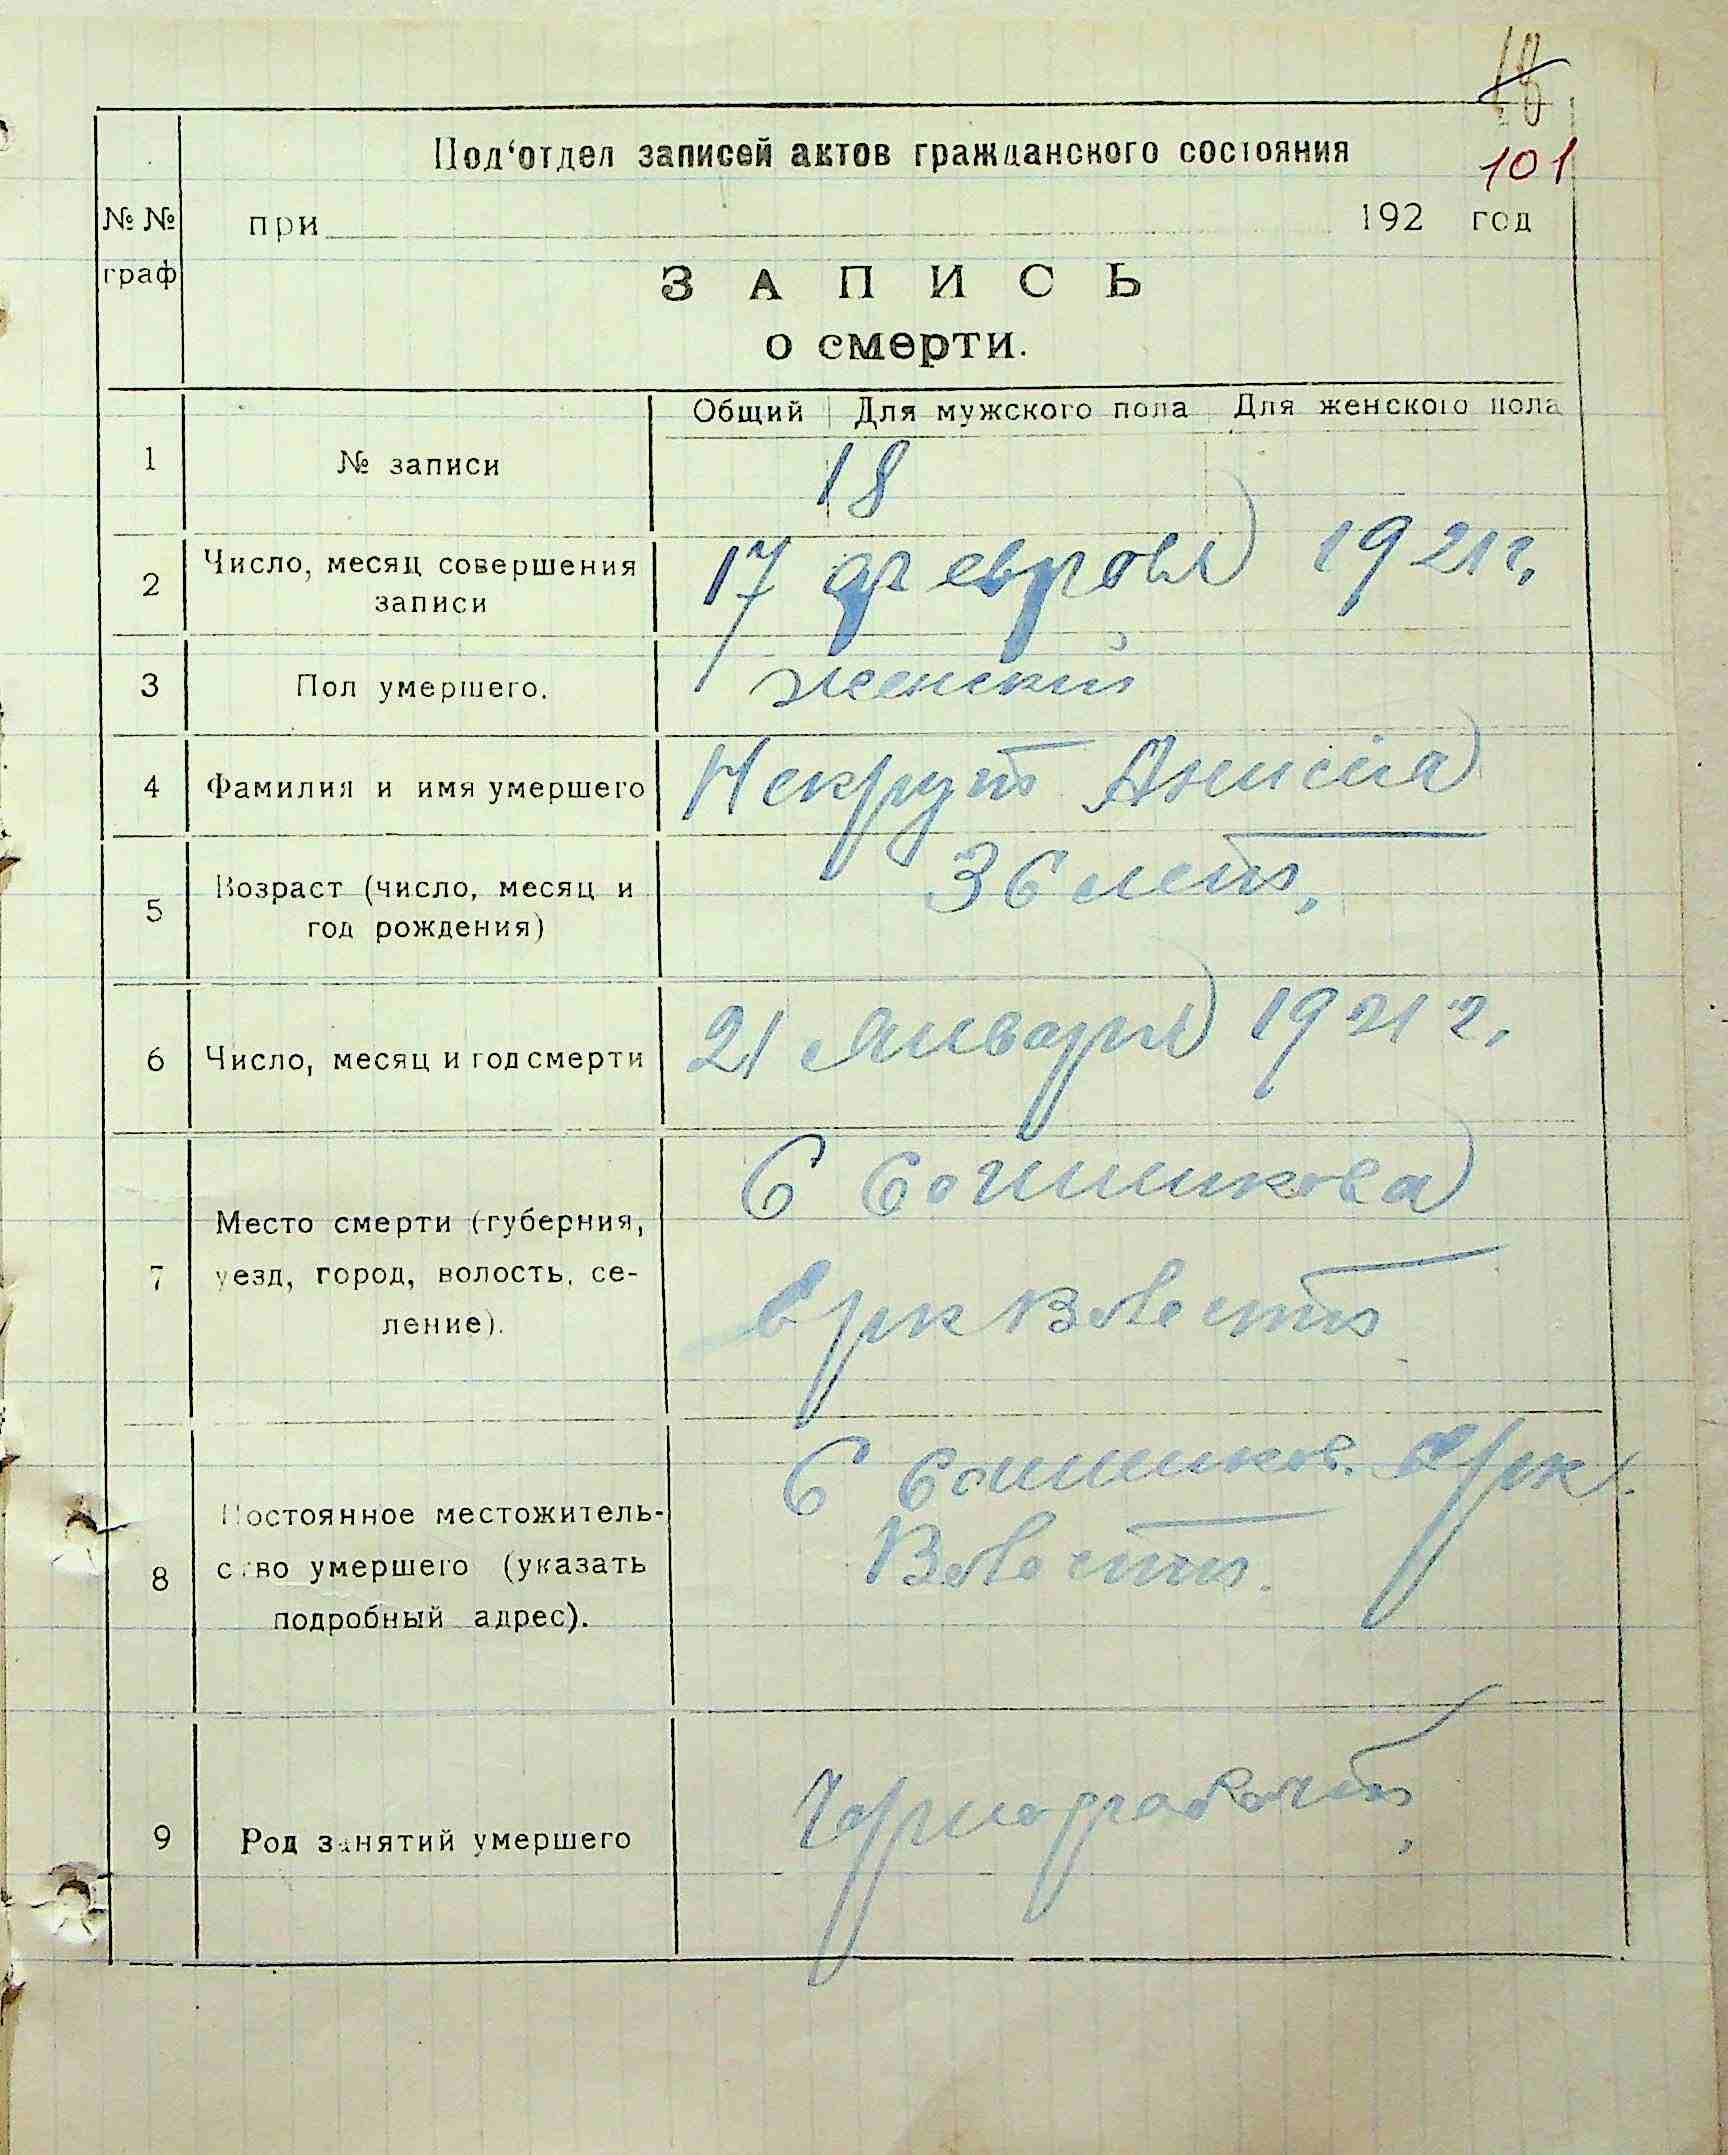 18
101
Под‘отдел записей актов гражданского состояния
№ № граф
при 192 год
ЗАПИСЬ
о смерти.
Общий Для мужского пола Для женского пола
1 № записи 18
2 Число, месяц совершения записи 17 февроля 1921 г.
3 Пол умершего. женский
4 Фамилия и имя умершего Некрут Анисия
5 Возраст (число, месяц и год рождения) 36 лет,
6 Число, месяц и год смерти 21 Январья 1921 г.
7 Место смерти (губерния, уезд, город, волость, селение). С Сошникова
Волости
8 Постоянное местожительство умершего (указать подробный адрес). С Сошников.
Волости.
9 Род занятий умершего